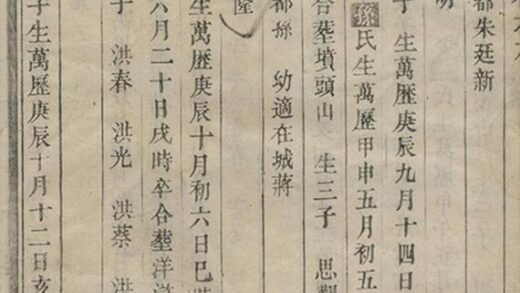 都朱廷新
生萬歷庚辰九月十四日
孫氏生萬歷甲申五月初五
合塟墳頭山 生三子 思
都孫 幼適在城蔣
隆
生萬歷庚辰十月初六日巳
六月二十日戌時卒合塟洋
子 洪春 洪光 洪蔡 洪
子生萬歷庚辰十月十二日亥